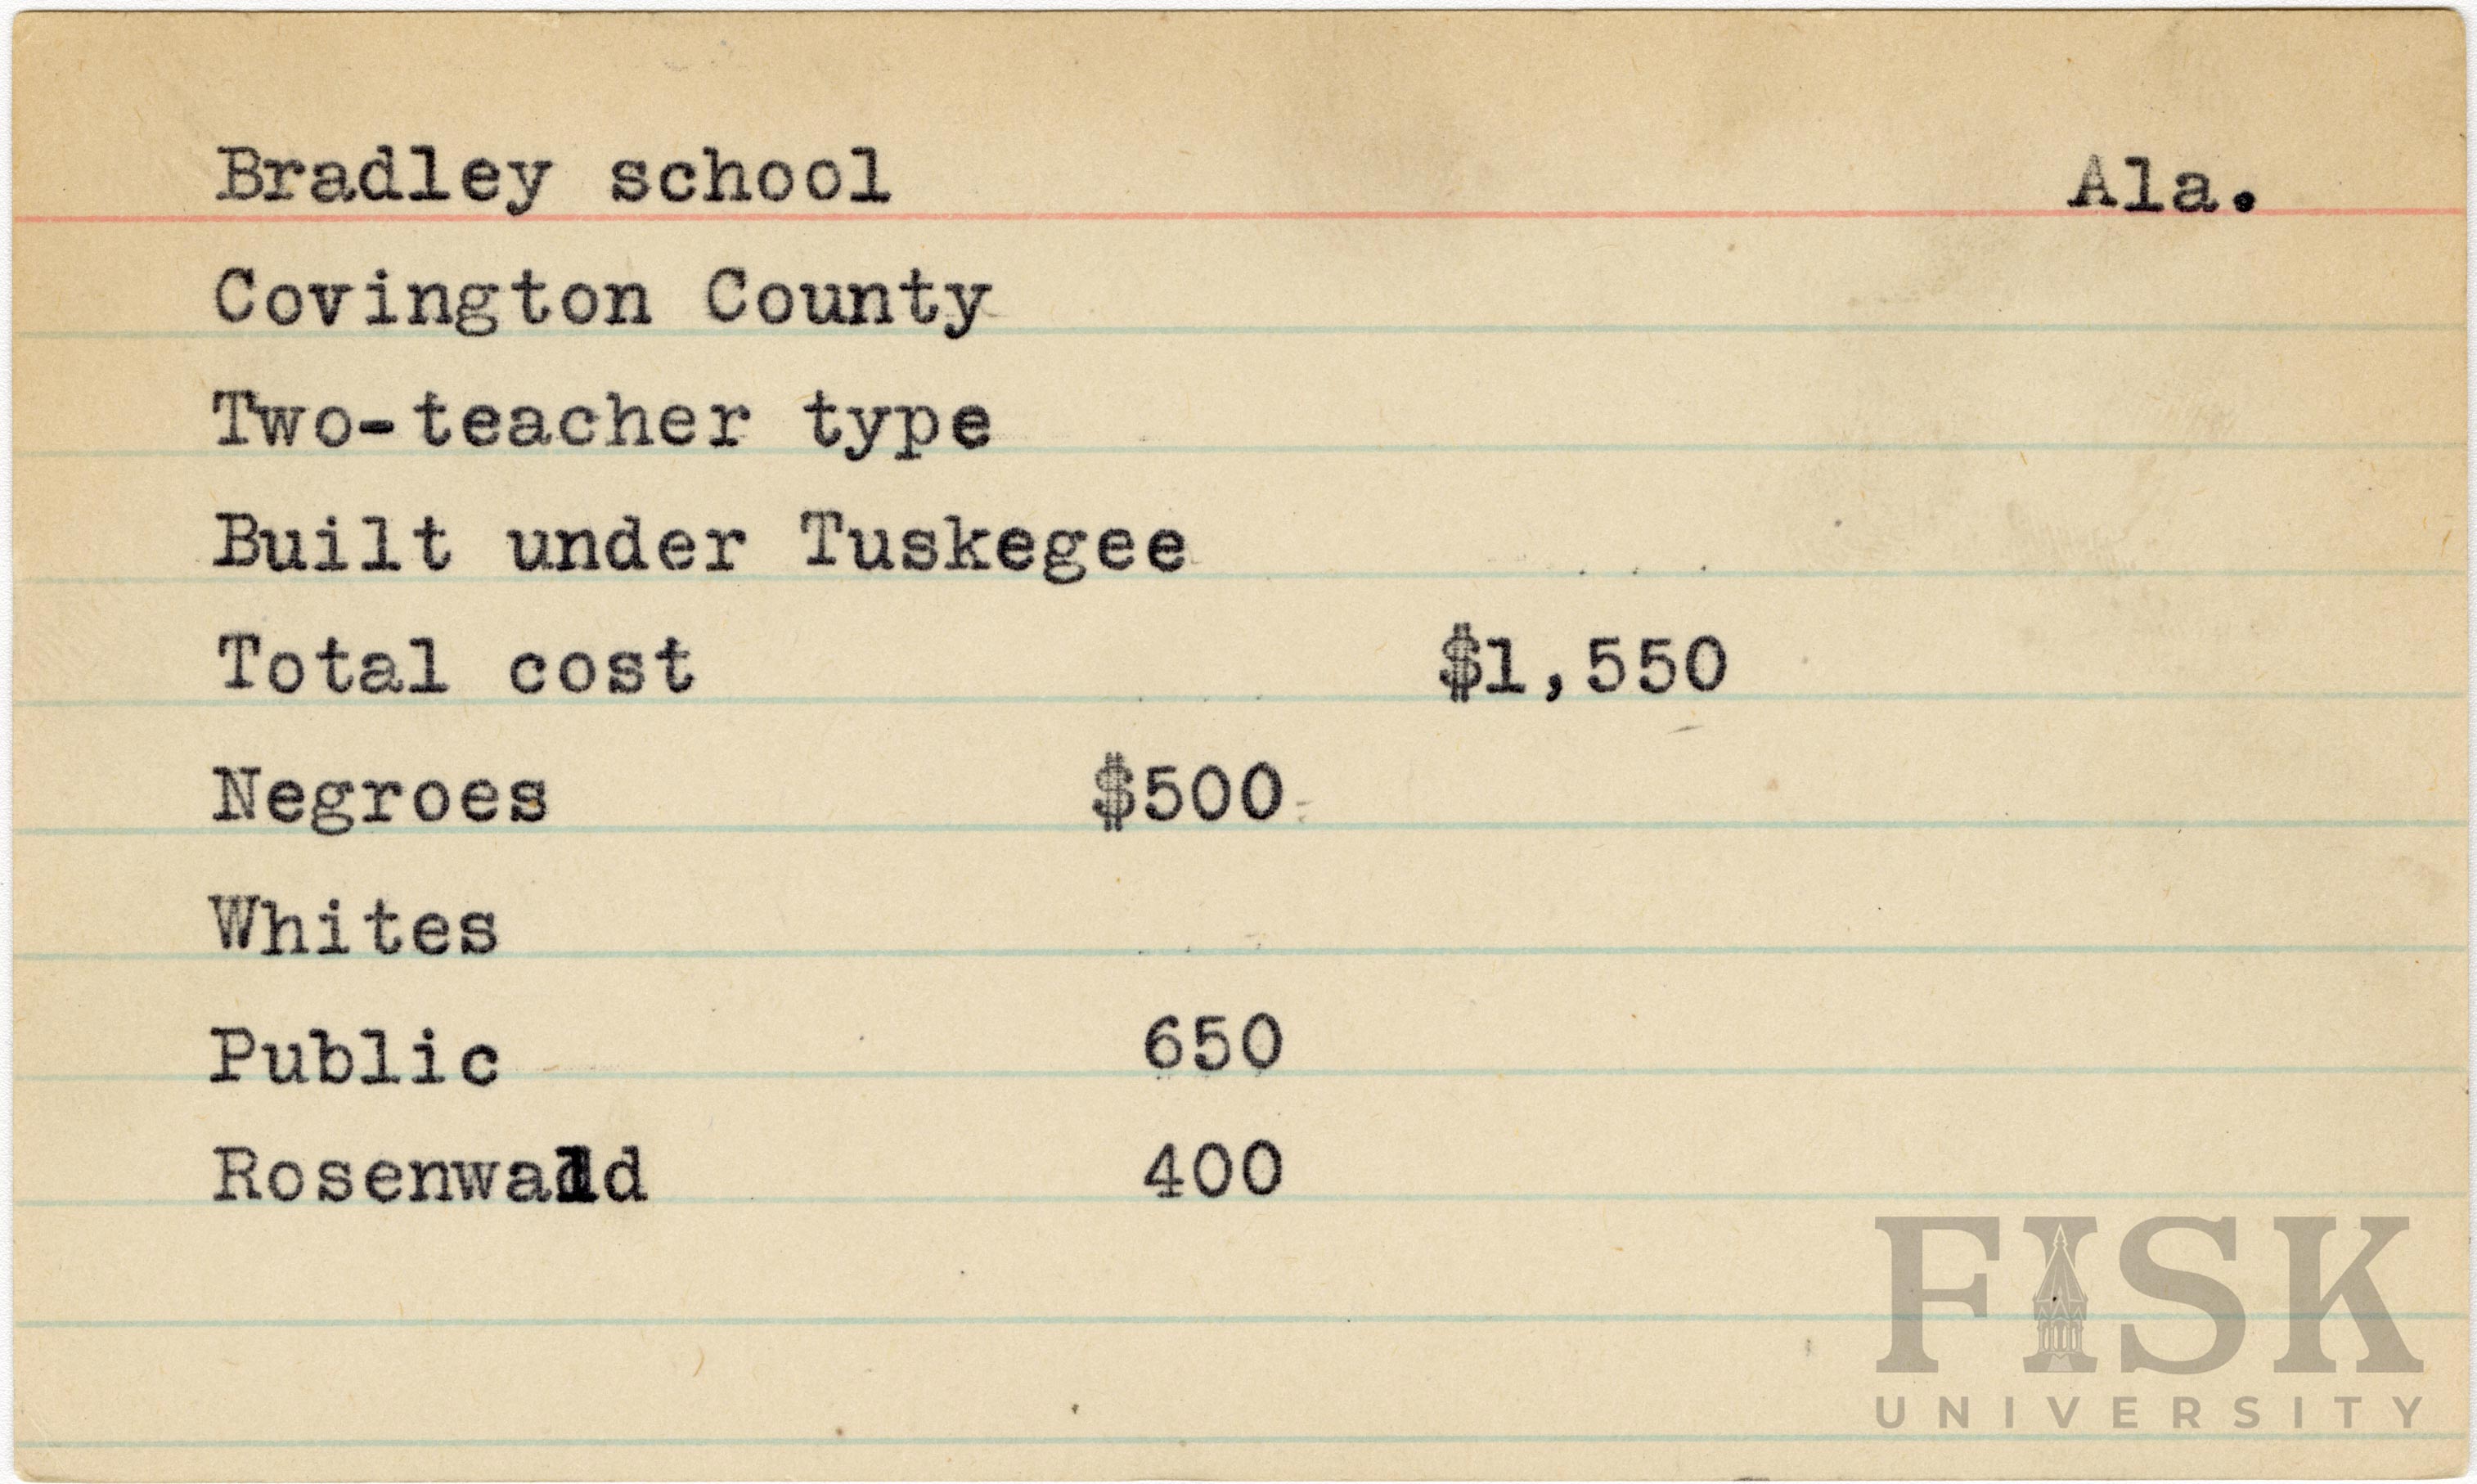 Bradley school Ala.
Covington County
Two-teacher type
Built under Tuskegee
Total cost $1,550
Negroes $500
Whites
Public 650
Rosenwald 400
FISK
UNIVERSITY